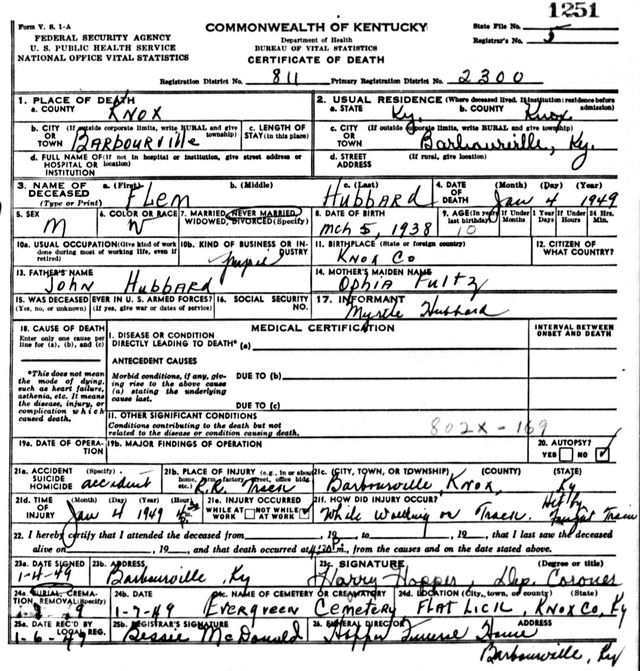 1251
Form V. S. 1-A
COMMONWEALTH OF KENTUCKY
State File No.
FEDERAL SECURITY AGENCY
Department of Health
Registrar's No. 5
U. S. PUBLIC HEALTH SERVICE
BUREAU OF VITAL STATISTICS
NATIONAL OFFICE VITAL STATISTICS
CERTIFICATE OF DEATH
Registration District No. 811 Primary Registration District No. 2300
1. PLACE OF DEATH
a. COUNTY Knox
2. USUAL RESIDENCE (Where deceased lived. If institution: residence before admission)
a. STATE Ky. b. COUNTY Knox
b. CITY (If outside corporate limits, write RURAL and give township)
OR TOWN Barbourville
c. LENGTH OF STAY (in this place)
c. CITY (If outside corporate limits, write RURAL and give township)
OR TOWN Barbourville, Ky.
d. FULL NAME OF (If not in hospital or institution, give street address or location)
HOSPITAL OR INSTITUTION
d. STREET ADDRESS (If rural, give location)
3. NAME OF DECEASED (Type or Print)
a. (First) Flem b. (Middle) c. (Last) Hubbard
4. DATE OF DEATH (Month) (Day) (Year) Jan 4 1949
5. SEX M
6. COLOR OR RACE W
7. MARRIED, NEVER MARRIED, WIDOWED, DIVORCED (Specify)
8. DATE OF BIRTH Mch 5, 1938
9. AGE (In years last birthday) 10 If Under 1 Year Months Days If Under 24 Hrs. Hours Min.
10a. USUAL OCCUPATION (Give kind of work done during most of working life, even if retired)
10b. KIND OF BUSINESS OR INDUSTRY
11. BIRTHPLACE (State or foreign country) Knox Co
12. CITIZEN OF WHAT COUNTRY?
13. FATHER'S NAME John Hubbard
14. MOTHER'S MAIDEN NAME Ophia Fultz
15. WAS DECEASED EVER IN U. S. ARMED FORCES?
(Yes, no, or unknown) (If yes, give war or dates of service)
16. SOCIAL SECURITY NO.
17. INFORMANT Myrtle Hubbard
18. CAUSE OF DEATH
Enter only one cause per line for (a), (b), and (c)
MEDICAL CERTIFICATION
INTERVAL BETWEEN ONSET AND DEATH
I. DISEASE OR CONDITION DIRECTLY LEADING TO DEATH* (a)
*This does not mean the mode of dying, such as heart failure, asthenia, etc. It means the disease, injury, or complication which caused death.
ANTECEDENT CAUSES
Morbid conditions, if any, giving rise to the above cause (a) stating the underlying cause last.
DUE TO (b)
DUE TO (c)
II. OTHER SIGNIFICANT CONDITIONS
Conditions contributing to the death but not related to the disease or condition causing death.
802X-169
19a. DATE OF OPERATION
19b. MAJOR FINDINGS OF OPERATION
20. AUTOPSY?
YES NO
21a. ACCIDENT SUICIDE HOMICIDE (Specify) accident
21b. PLACE OF INJURY (e.g., in or about home, farm, factory, street, office bldg. etc.) R.R. Track
21c. (CITY, TOWN, OR TOWNSHIP) (COUNTY) (STATE)
Barbourville Knox, Ky
21d. TIME OF INJURY (Month) (Day) (Year) (Hour) Jan 4 1949
21e. INJURY OCCURRED
WHILE AT WORK NOT WHILE AT WORK
21f. HOW DID INJURY OCCUR? Hit by Freight Train
While Walking on Track.
22. I hereby certify that I attended the deceased from , 19 to , 19 , that I last saw the deceased
alive on , 19 , and that death occurred at 4:30 m., from the causes and on the date stated above.
23a. DATE SIGNED 1-4-49
23b. ADDRESS Barbourville, Ky
23c. SIGNATURE (Degree or title)
Harry Hopper, Dep. Coroner
24a. BURIAL, CREMATION, REMOVAL (Specify)
24b. DATE 1-7-49
24c. NAME OF CEMETERY OR CREMATORY Evergreen Cemetery
24d. LOCATION (City, town, or county) (State) Flat Lick, Knox Co, Ky
25a. DATE REC'D BY LOCAL REG. 1-6-49
25b. REGISTRAR'S SIGNATURE Bessie McDonald
26. FUNERAL DIRECTOR ADDRESS
Hopper Funeral Home
Barbourville, Ky